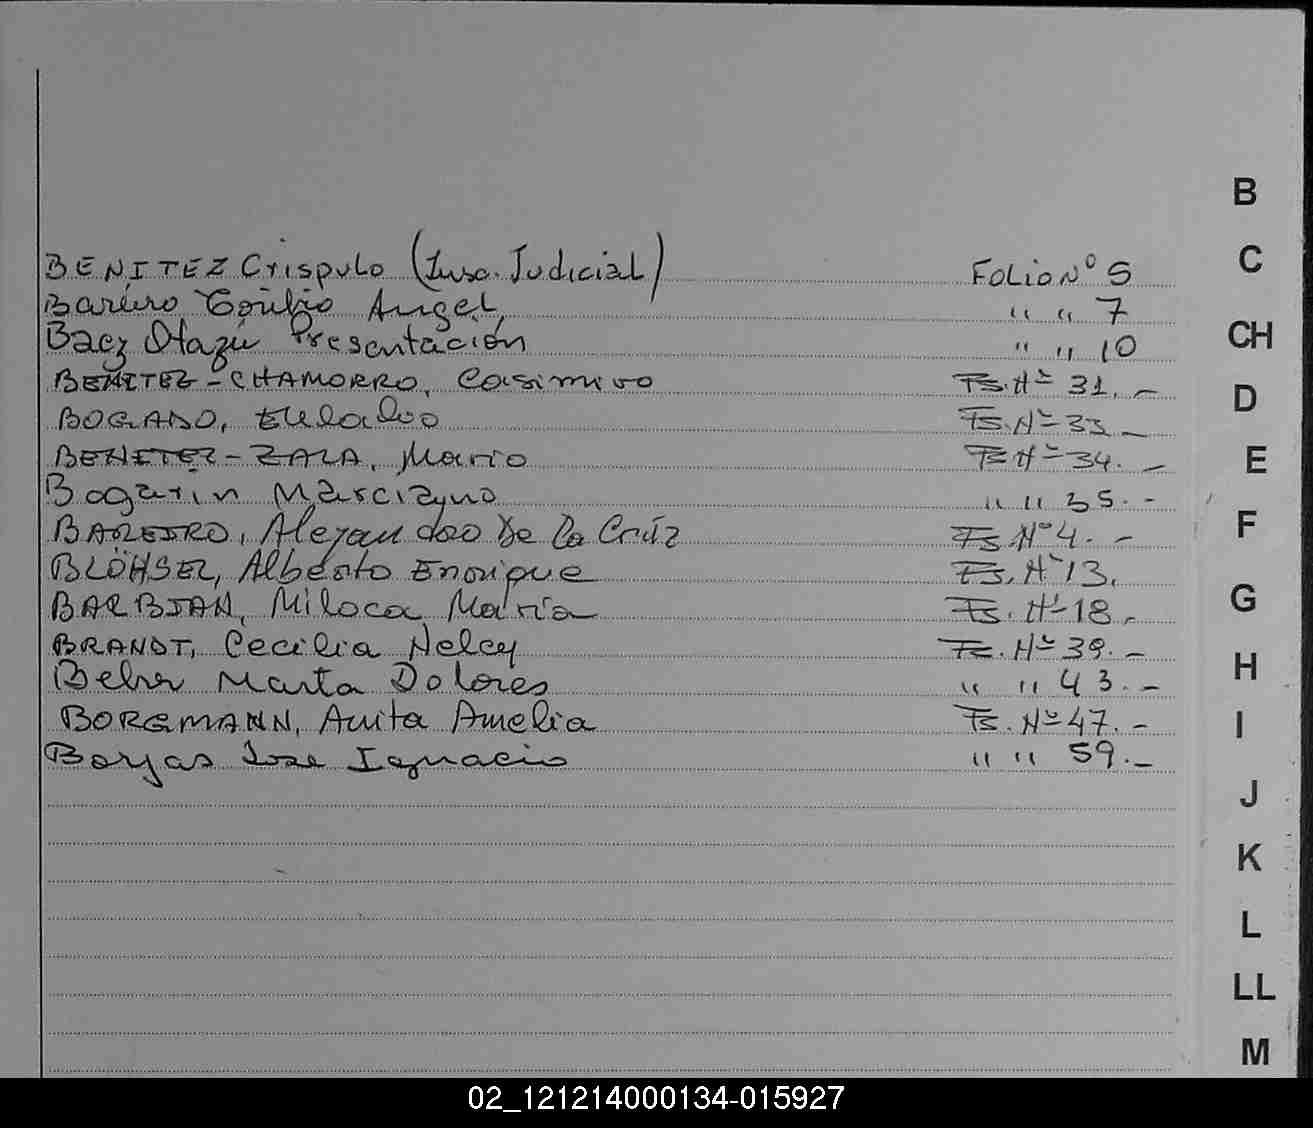 BENITEZ Crispulo (Insc. Judicial) FOLIO Nº 5
Bareiro Angel, " " 7
Baez Otazú Presentación " " 10
BENITEZ-CHAMORRO, Casimiro Fs. Nº 31.-
BOGADO, Eulalio Fs. Nº 33.-
BENITEZ-ZALA, Mario Fs Nº 34.-
Bogarin Marciano " " 35.-
BAREIRO, Alejandro De La Cruz Fs Nº 4.-
BLÖHSEL, Alberto Enrique Fs. Nº 13.
BARBIAN, Miloca Maria Fs. Nº 18.-
BRANDT, Cecilia Nelcy Fs. Nº 39.-
Marta Dolores " " 43.-
BORGMANN, Anita Amelia Fs. Nº 47.-
Borjas Jose Ignacio " " 59.-
B
C
CH
D
E
F
G
H
I
J
K
L
LL
M
02_121214000134-015927